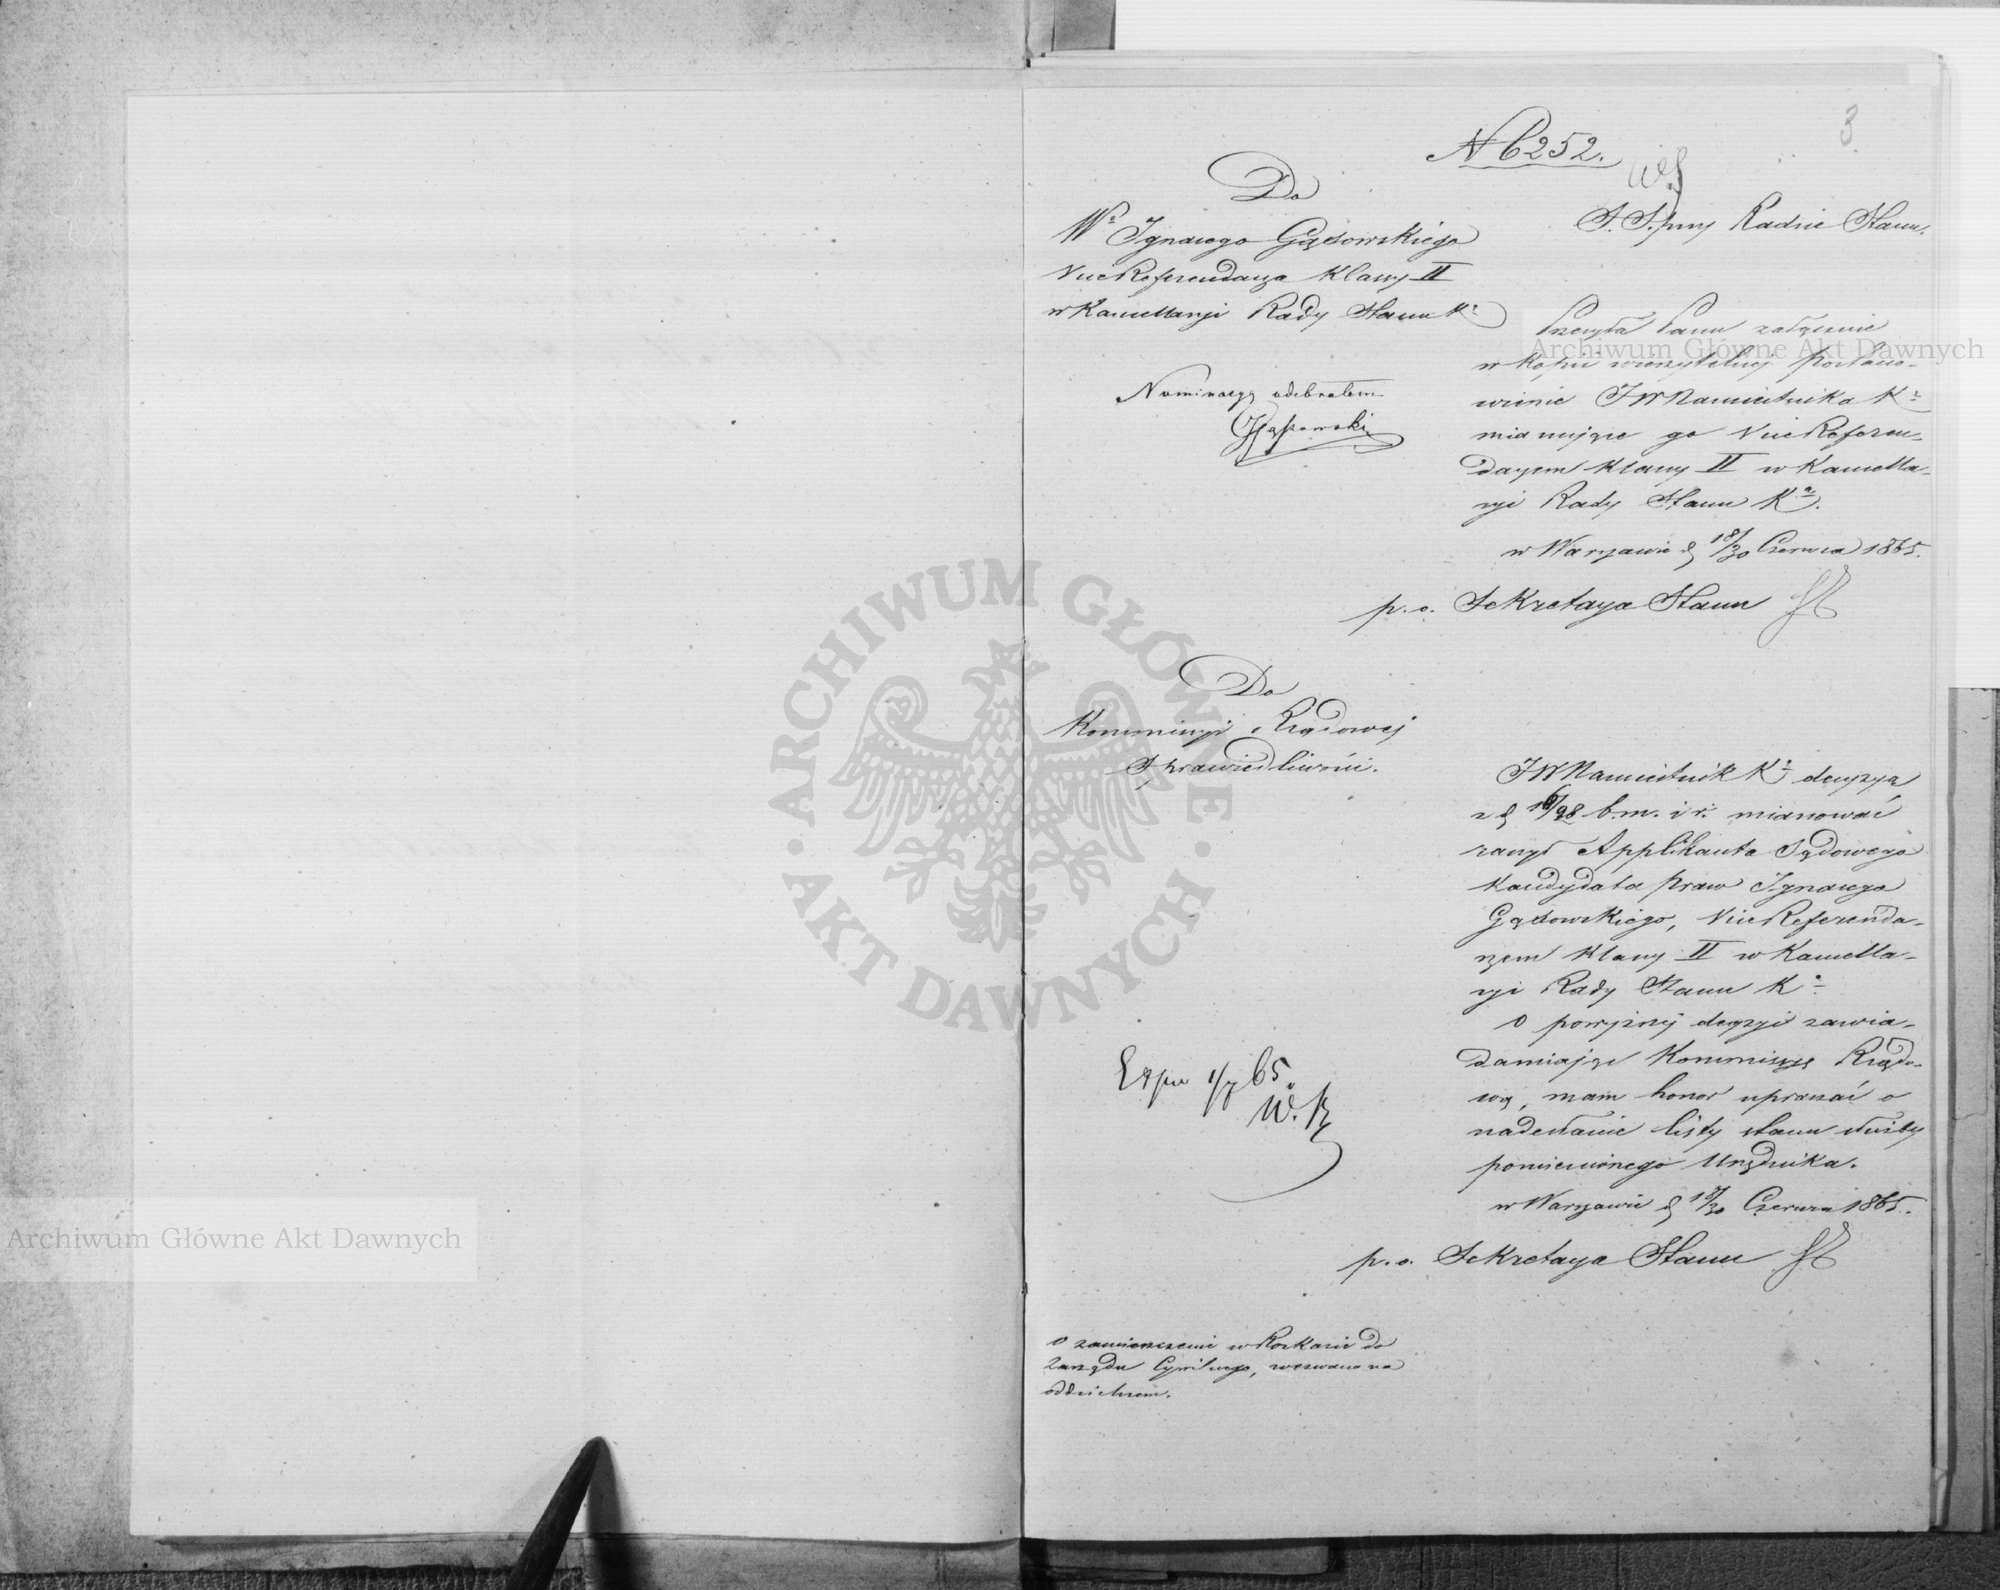 3
N 6252.
Do
Wo Ignacego Gąsowskiego
ViceReferendarza Klassy II
w Kancellaryi Rady Stanu Ka
S. S. przy Radzie Stanu.
Nominacyę odebrałem
Przesyła Panu załącznie
w kopii wierzytelnej postano-
wienie JW Namiestnika Ka
mianujące go ViceReferen-
darzem Klassy II w Kancella-
ryi Rady Stanu Ka.
w Warszawie d 18/30 Czerwca 1865.
p. o. Sekretarza Stanu
Do
Kommissyi Rządowej
Sprawiedliwości.
JW Namiestnik Ka decyzyą
z d 16/28 b.m. i r. mianować
raczył Applikanta Sądowego
Kandydata praw Ignacego
Gąsowskiego, ViceReferenda-
rzem Klassy II w Kancella-
ryi Rady Stanu Ka
O powyższej decyzyi zawia-
damiając Kommissyę Rządo-
wą, mam honor upraszać o
nadesłanie listy stanu służby
pomienionego Urzędnika.
w Warszawie d 18/30 Czerwca 1865.
p. o. Sekretarza Stanu
Exp 1/7 65
O zamieszczenie w Rozkazie do
Zarządu Cywilnego, wezwano na
oddzielnem.
Archiwum Główne Akt Dawnych
Archiwum Główne Akt Dawnych
ARCHIWUM GŁÓWNE • AKT DAWNYCH •